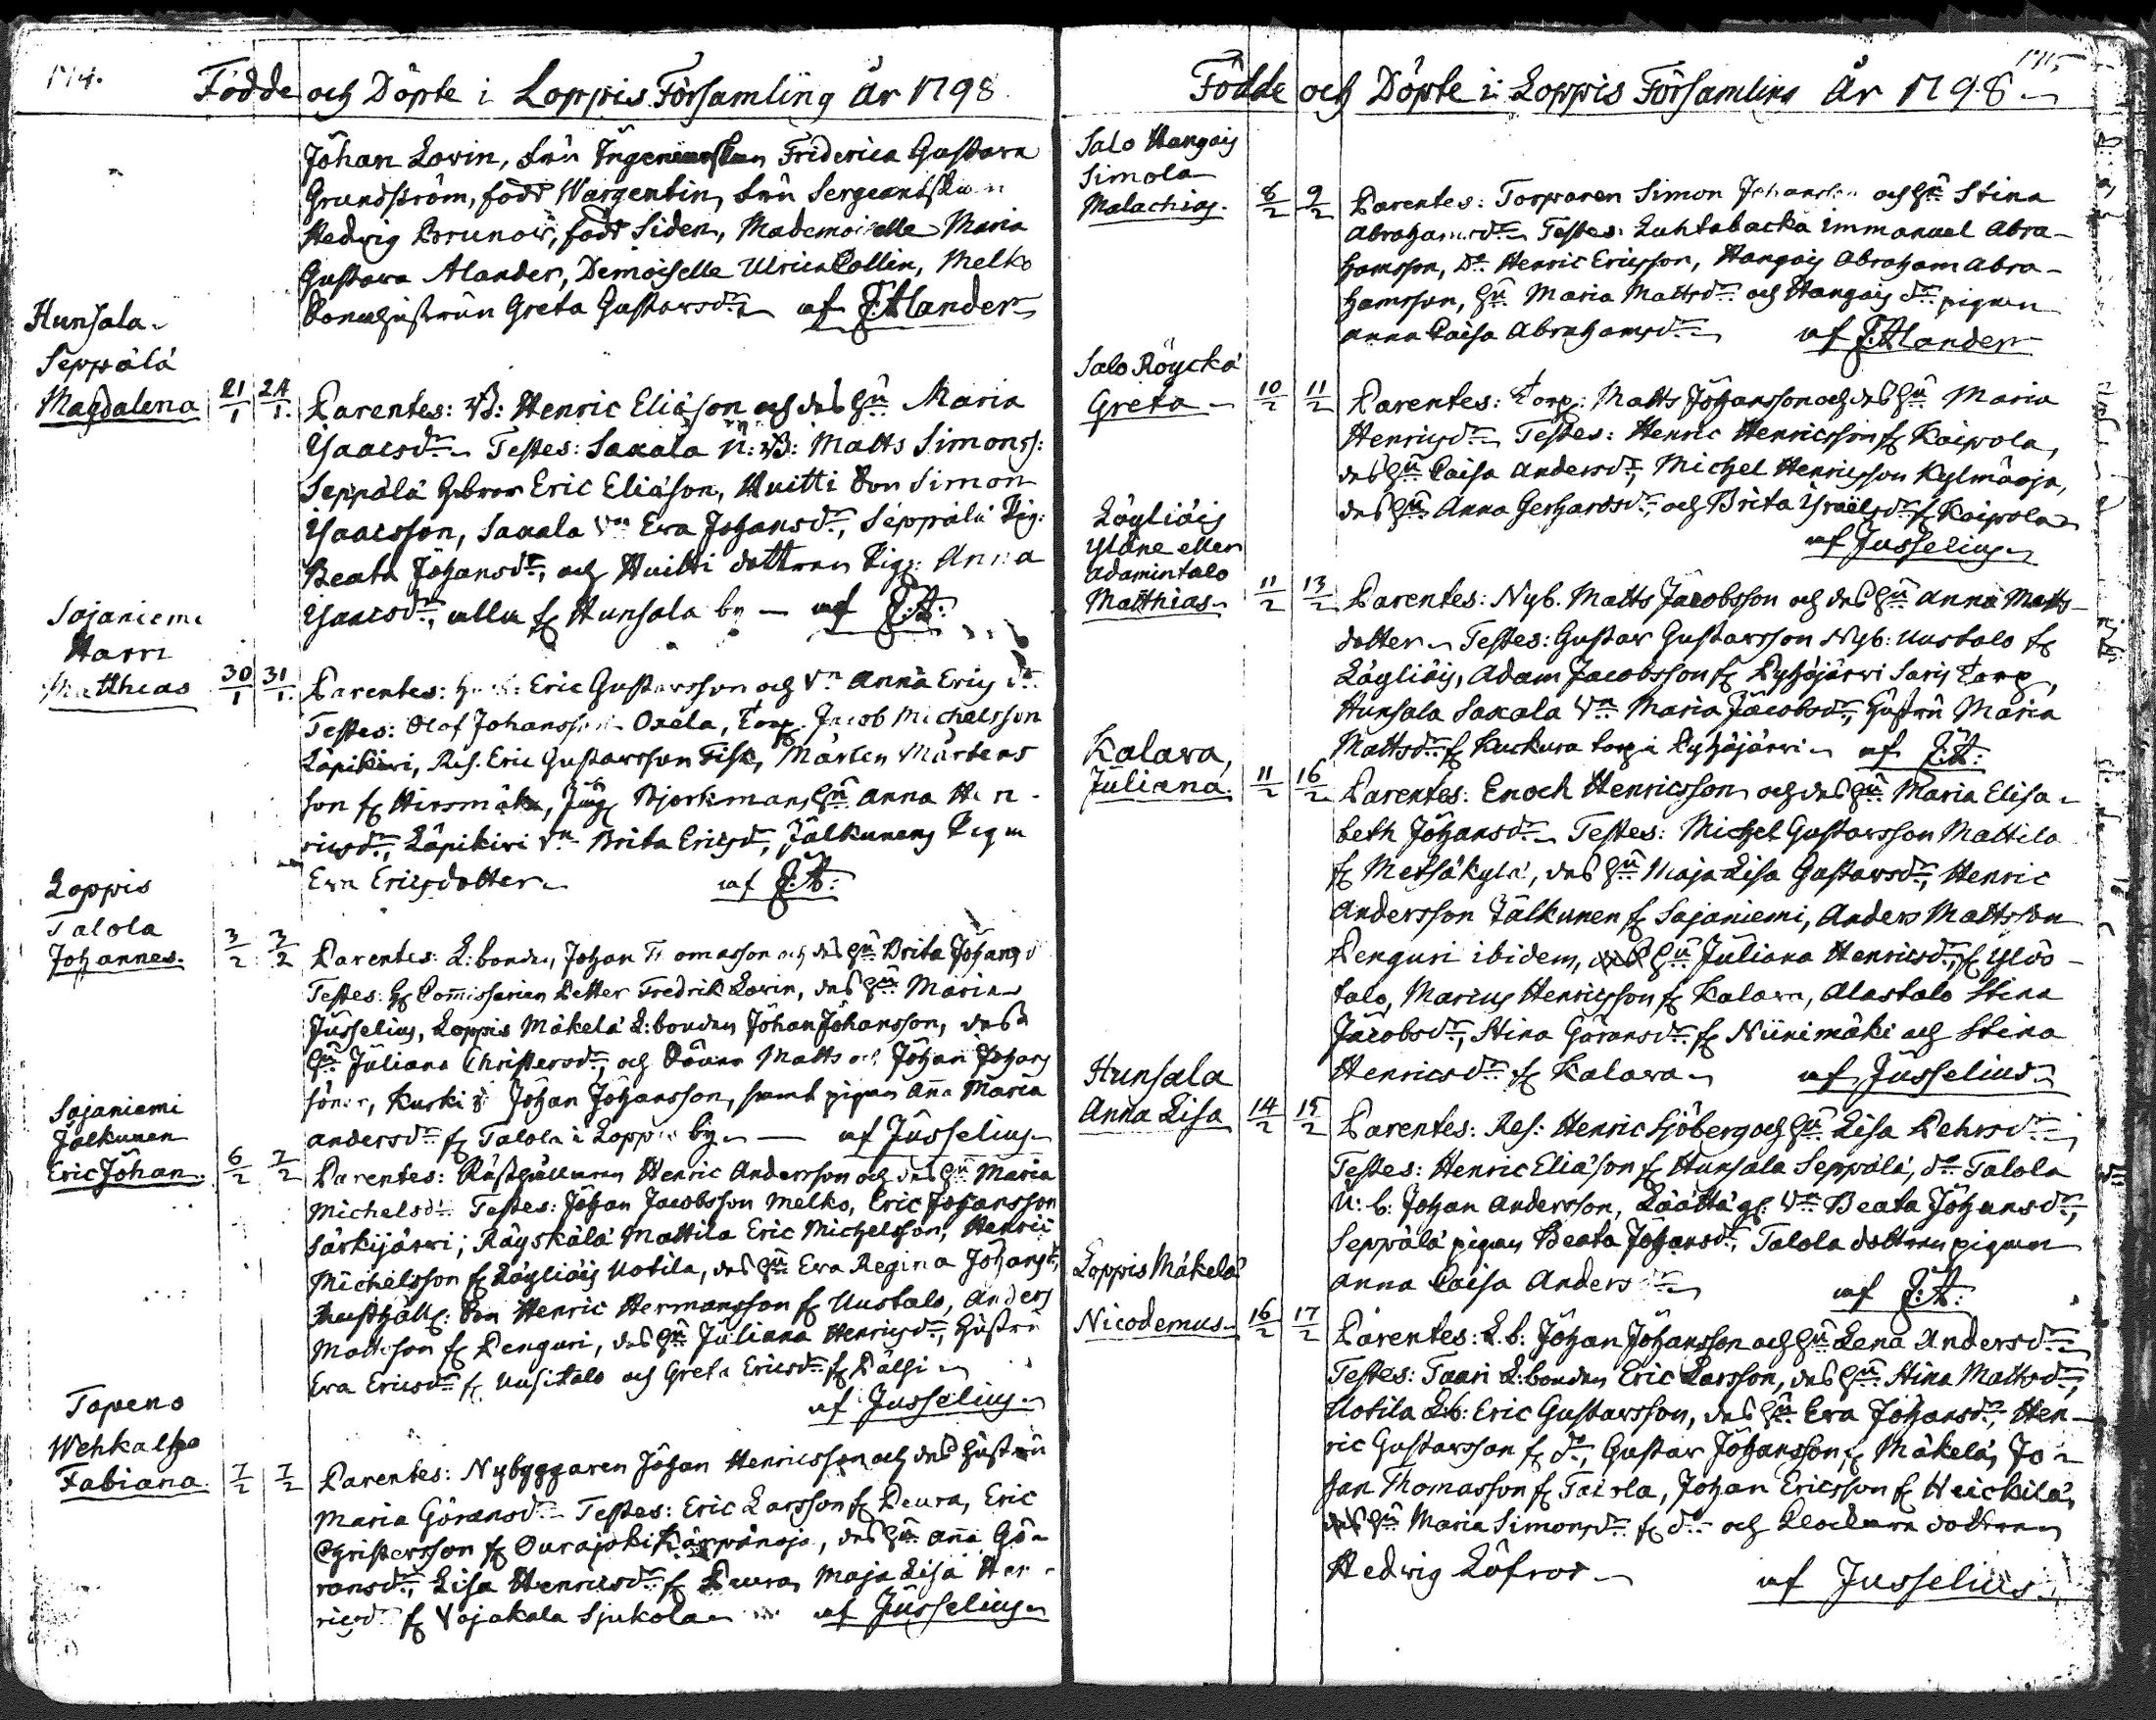 174.
Födde och Döpte i Loppis Församling År 1798.
Johan Lovin, Fru Ingenieurskan Friderica Gustava
Grundström, född Wargentin, Fru Sergeantskan
Hedvig Brunow, född Siden, Mademoiselle Maria
Gustava Alander, Demoiselle Ulrica Collin, Melko
Bondhustrun Greta Gustavsdr af J. Alander
Hunsala
Seppälä
Magdalena 21/1 24/1 Parentes: B: Henric Eliäson och das hu Maria
Isaacsdr Testes: Saxala N: B: Matts Simonss:
Seppälä Gebror Eric Eliäson, Huitti Son Simon
Isaacsson, Saxala Vn Eva Johansdr, Seppälä Pig:
Beata Johansdr, och Huitti dottren Pig: Anna
Isaacsdr, alla f Hunsala by — af J: A:
Sajaniemi
Harri
Matthias 30/1 31/1 Parentes: Eric Gustavsson och Vn Anna Erics dr
Testes: Olof Johansson Oxela, Torp. Jacob Michelsson
Läpikivi, Res. Eric Gustavsson Fisk, Mårten Mårtens
son f Hirsmäki, Björkman, hu Anna Hen-
ricsdr, Läpikivi Vn Brita Ericsdr, Jälkunens Piga
Eva Ericsdotter af J: A:
Loppis
Talola
Johannes. 3/2 3/2 Parentes: L: bonden Johan Tomasson och das hu Brita Johansd
Testes: H Commissarien Petter Fredrik Lovin, das hu Maria
Jusselius, Loppis Mäkelä L: bonden Johan Johansson, dess
hu Juliana Christersdr, och Sönr Matts och Johan Johans
söner, Kurki Johan Johansson, samt pigan Aña Maria
Andersdr f Talola i Loppis by — af Jusselius
Sajaniemi
Jälkunen
Eric Johan. 6/2 7/2 Parentes: Rusthållaren Henric Andersson och das hu Maria
Michelsdr Testes: Johan Jacobsson Melko, Eric Johansson
Särkijärvi; Räyskälä Mattila Eric Michelsson, Henric
Michelsson f Läyliäis Uotila, das hu Eva Regina Johansdr,
Rusthåll: Son Henric Hermansson f Uustalo, Anders
Mattsson f Penguri, das hu Juliana Henricsdr, hustru
Eva Ericsdr f Uusitalo och Greta Ericsdr f Pälsi
af Jusselius
Topeno
Wehkalho
Fabiana. 7/2 7/2 Parentes: Nybyggaren Johan Henricsson och das hustru
Maria Göransdr Testes: Eric Larsson f Peura, Eric
Christersson f Ourajoki Kärpänoja, das hu Aña Gö-
ransdr, Lisa Henricsdr f Peura, Maja Lisa Hen-
ricsdr f Vojakala Sjukola af Jusselius
175
Födde och Döpte i Loppis Församling År 1798
Salo Hangais
Simola
Malachias. 8/2 9/2 Parentes: Torparen Simon Johansson och hu Stina
Abrahamsdr Testes: Luhtabacka Immanuel Abra-
hamsson, Do Henric Ericsson, Hangais Abraham Abra-
hamsson, hu Maria Mattsdr och Hangais dr pigan
Anna Caisa Abrahamsdr af J: Alander
Salo Röyckä
Greta 10/2 11/2 Parentes: Torp: Matts Johansson och das hu Maria
Henricsdr Testes: Henric Henricsson f Koipola,
das hu Caisa Andersdr, Michel Henricsson Kylmäoja,
das hu Anna Gerhardsdr, och Brita Israëlsdr f Koipola
af Jusselius
Läyliäis
Yläne eller
Adamintalo
Matthias 11/2 13/2 Parentes: Nyb. Matts Jacobsson och das hu Anna Matts-
dotter Testes: Gustav Gustavsson Nyb: Uustalo f
Läyliäis, Adam Jacobsson f Pyhäjärvi Saris Torp,
Hunsala Saxala Vn Maria Jacobsdr, hustru Maria
Mattsdr f Kuckura torp i Pyhäjärvi af J: A:
Kalava,
Juliana. 11/2 16/2 Parentes: Enoch Henricsson och das hu Maria Elisa-
beth Johansdr Testes: Michel Gustavsson Mattila
f Metsäkylä, das hu Maja Lisa Gustavsdr, Henric
Andersson Jälkunen f Sajaniemi, Anders Mattsson
Penguri ibidem, hu Juliana Henricsdr, f Ylös-
talo, Marcus Henricsson f Kalava, Alastalo Stina
Jacobsdr, Stina Göransdr f Niinimäki och Stina
Henricsdr f Kalava af Jusselius
Hunsala
Anna Lisa 14/2 15/2 Parentes: Res: Henric Sjöberg och hu Lisa Pehrsdr
Testes: Henric Eliäson f Hunsala Seppälä, do Talola
N: b: Johan Andersson, Läättä gl. Vn Beata Johansdr,
Seppälä pigan Beata Johansdr, Talola dottren pigan
Anna Caisa Andersdr af J: A:
Loppis Mäkelä
Nicodemus 16/2 17/2 Parentes: L. b: Johan Johansson och hu Lena Andersdr
Testes: Taari L: bonden Eric Larsson, das hu Stina Mattsdr,
Uotila L: b: Eric Gustavsson, das hu Eva Johansdr, Hen-
ric Gustavsson f do, Gustav Johansson f Mäkelä, Jo-
han Thomasson f Tairla, Johan Ericsson f Heickilä,
das hu Maria Simonsdr f do och Klockare dottren
Hedvig Löfrot af Jusselius